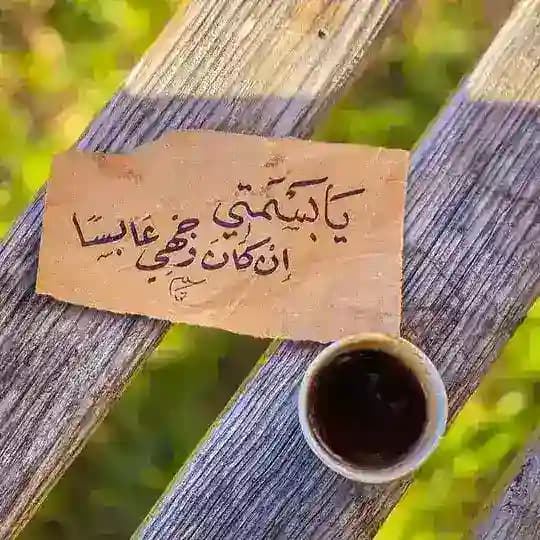 يَا بَسْمَتِي
إنْ كَانَ وَجْهِي عَابِسًا